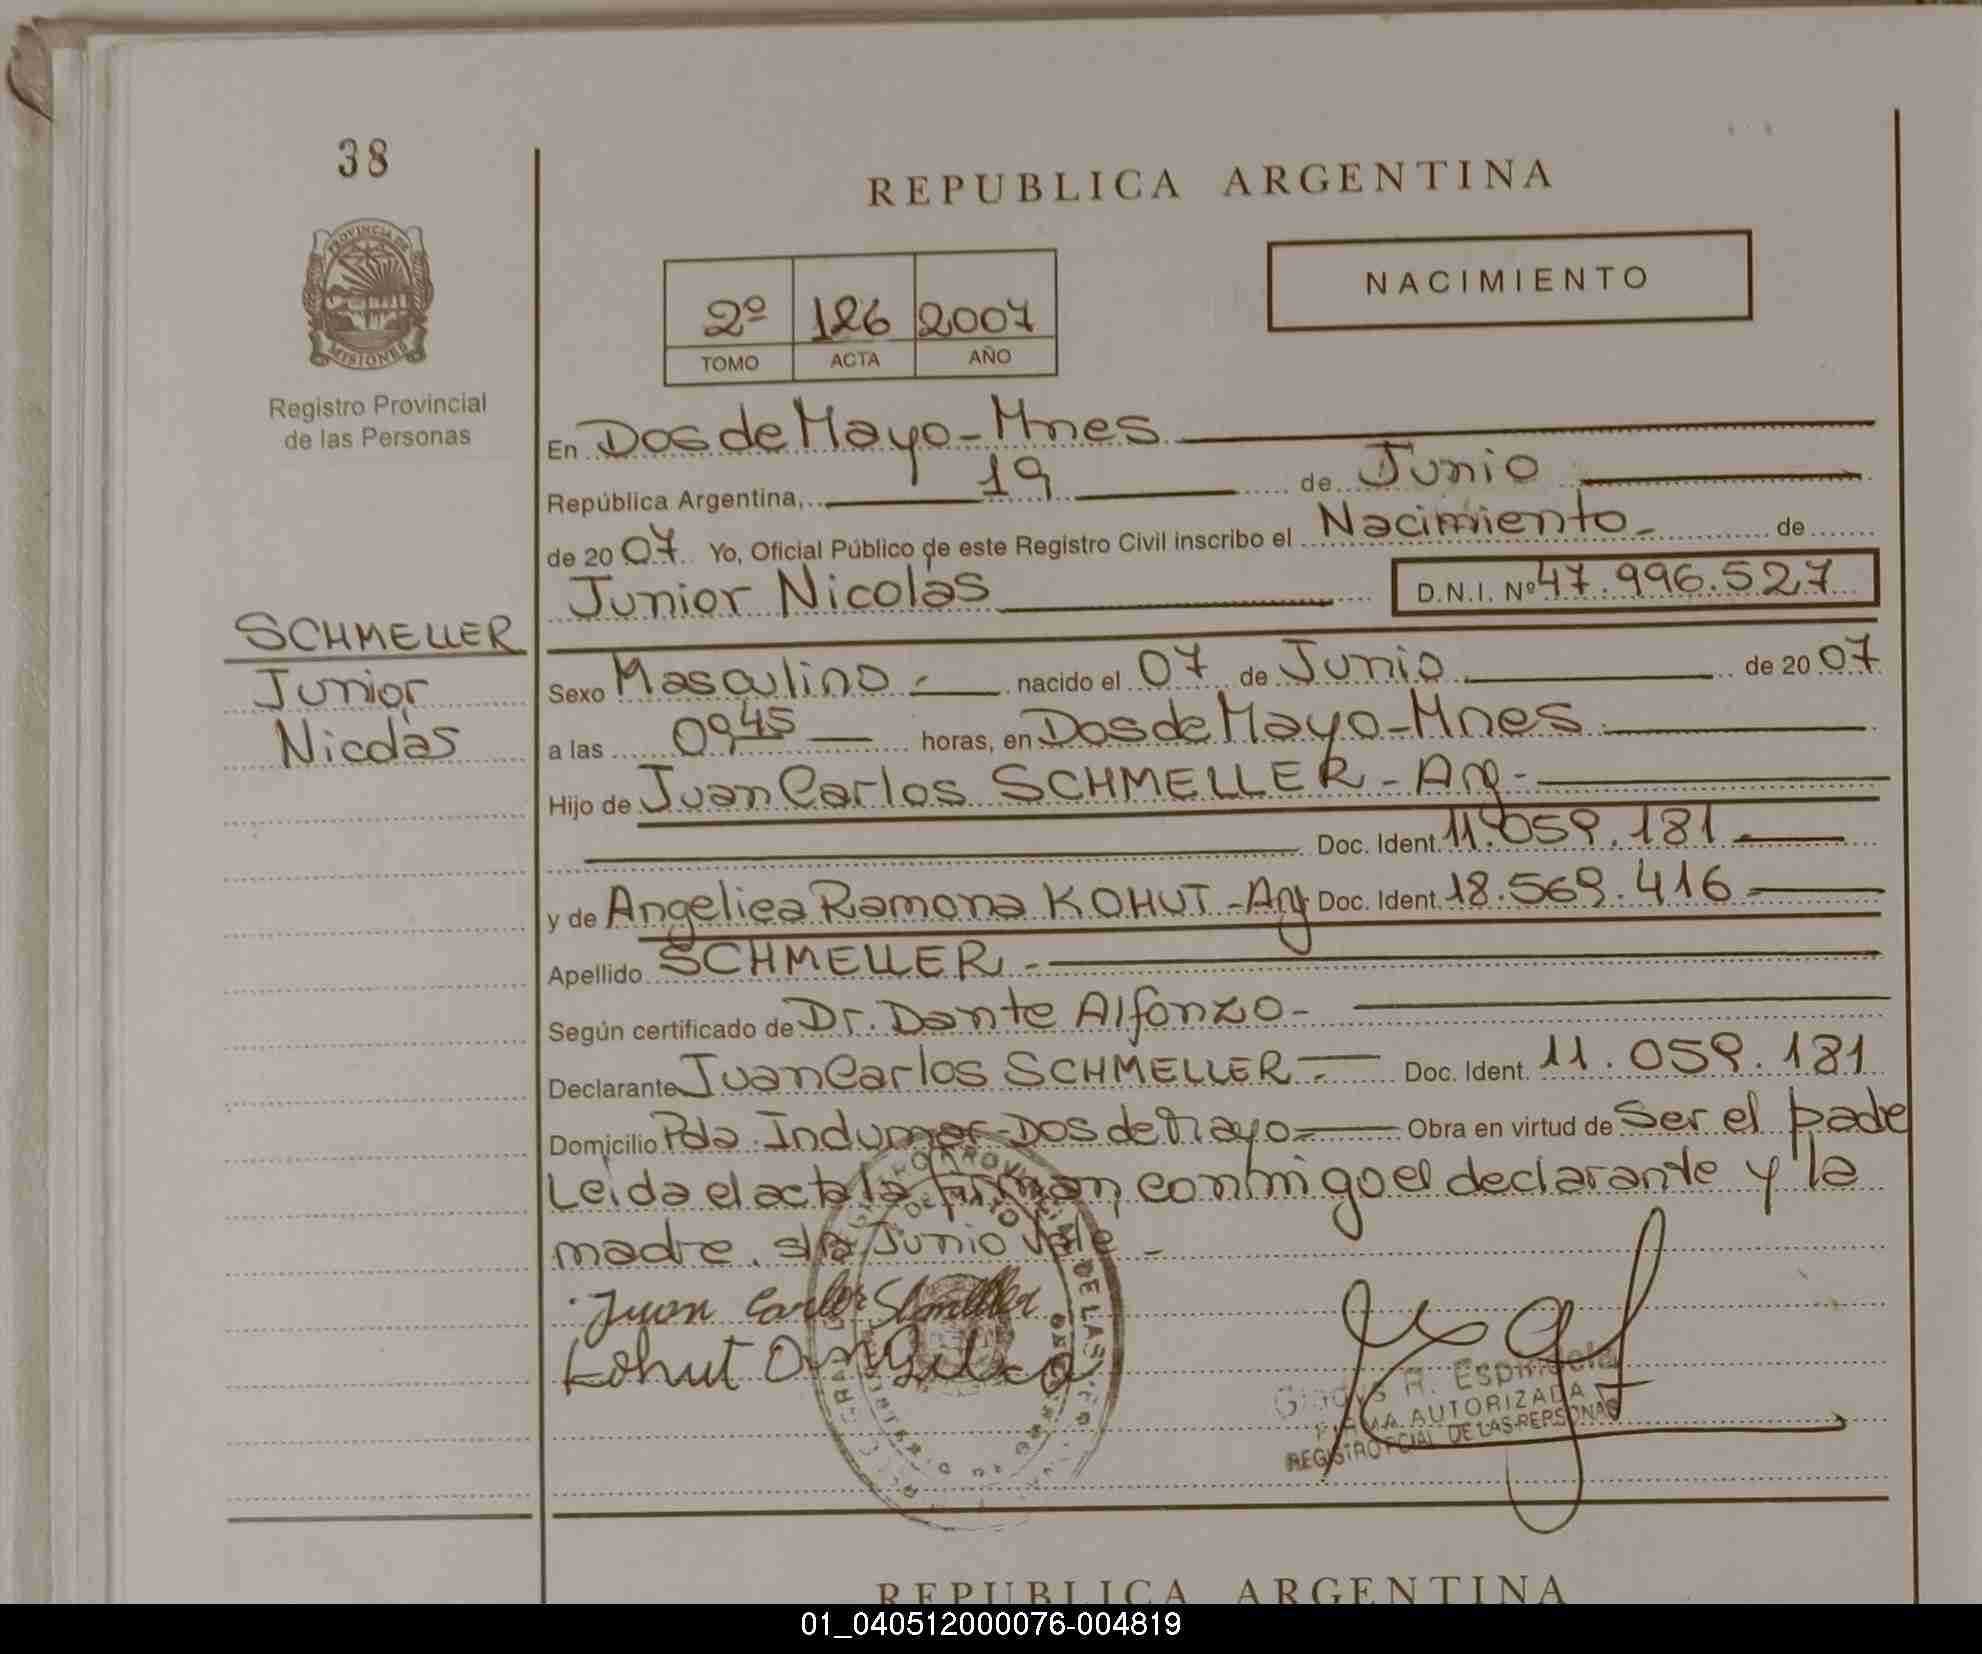 38
REPUBLICA ARGENTINA
PROVINCIA DE
MISIONES
NACIMIENTO
2º 126 2007
TOMO ACTA AÑO
Registro Provincial
de las Personas
En Dos de Mayo - Mnes
República Argentina, 19 de Junio
de 2007 Yo, Oficial Público de este Registro Civil inscribo el Nacimiento - de
Junior Nicolás D.N.I. Nº 47.996.527
SCHMELLER
Junior
Nicolás
Sexo Masculino - nacido el 07 de Junio de 2007
a las 09,45 horas, en Dos de Mayo - Mnes
Hijo de Juan Carlos SCHMELLER - Arg -
Doc. Ident. 11.059.181
y de Angelica Ramona KOHUT - Arg Doc. Ident. 18.569.416
Apellido SCHMELLER -
Según certificado de Dr. Dante Alfonzo -
Declarante Juan Carlos SCHMELLER - Doc. Ident. 11.059.181
Domicilio Pda. Indumar - Dos de Mayo - Obra en virtud de Ser el padre
Leida el acta la firman conmigo el declarante y la
madre. s/r Junio Vale -
Juan Carlos Schmeller
Kohut Angelica
Gladys R. Espindola
FIRMA AUTORIZADA
REGISTRO PCIAL DE LAS PERSONAS
REPUBLICA ARGENTINA
01_040512000076-004819